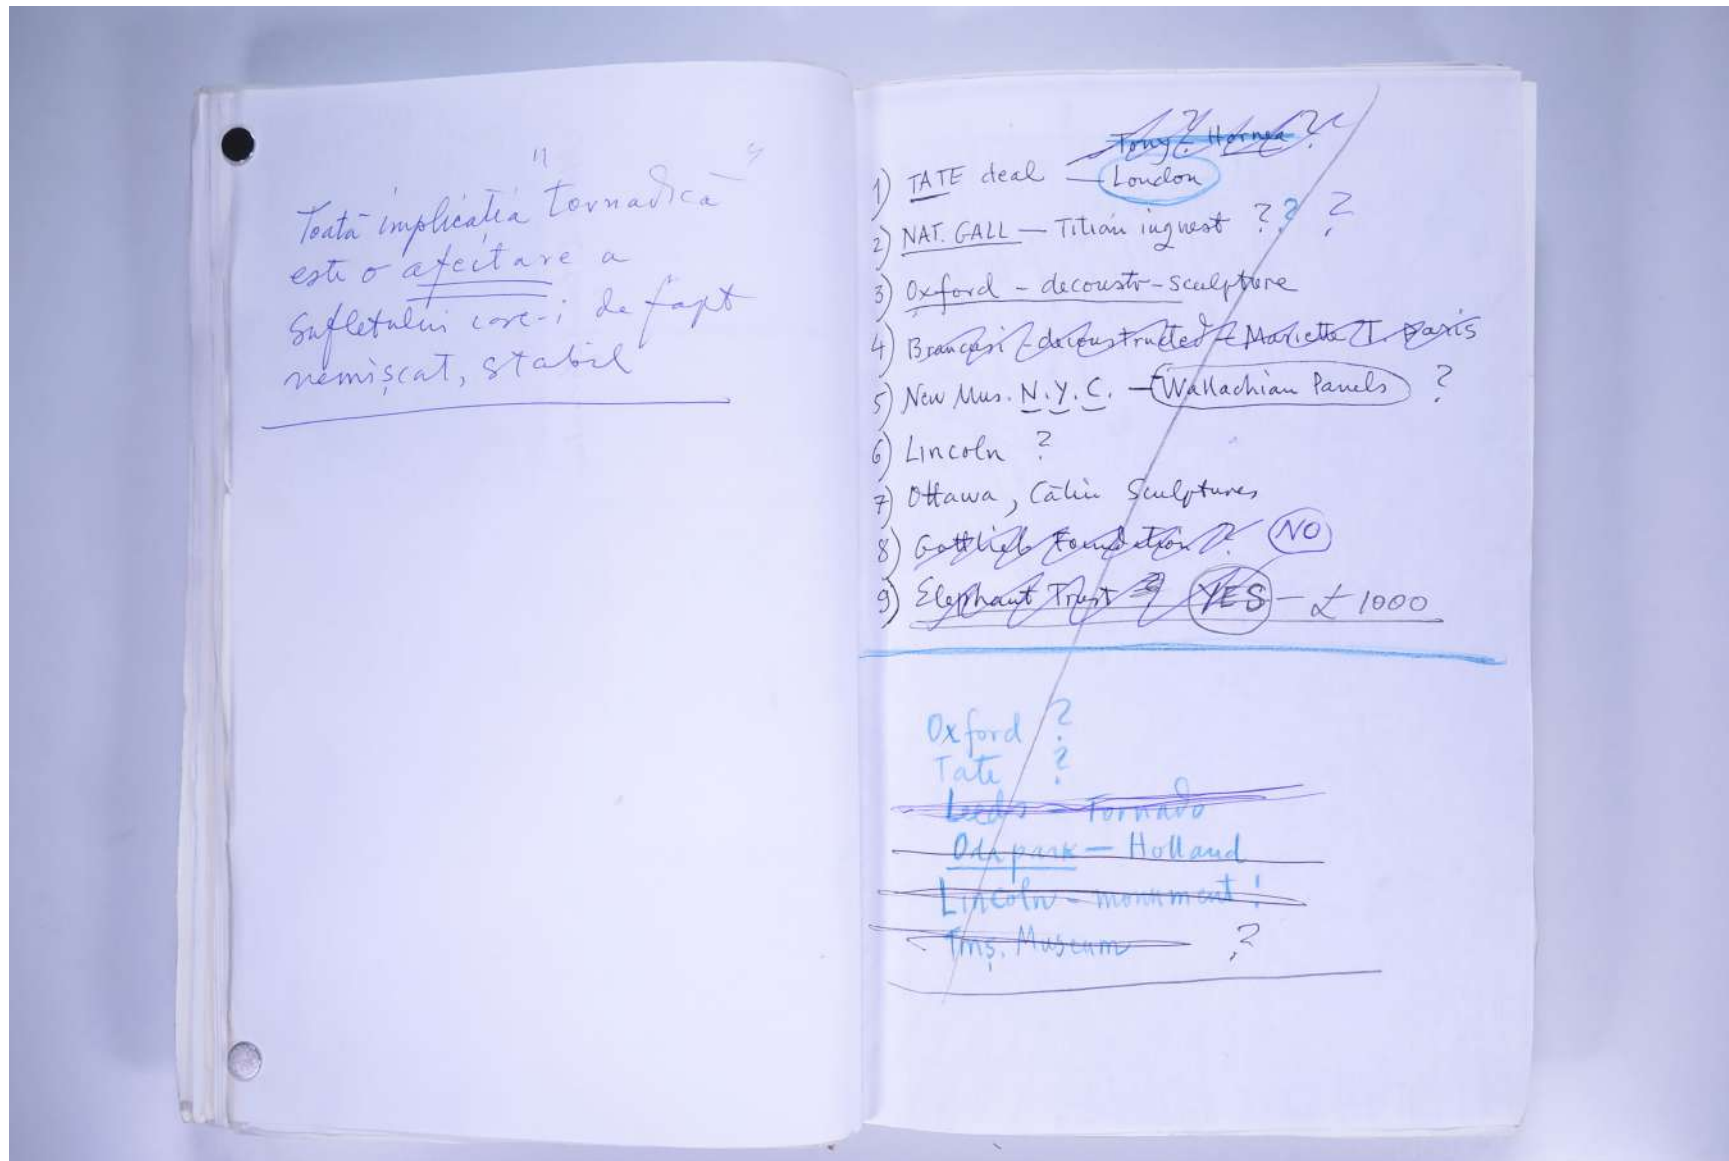 Toată implicația "tornadică"
este o afectare a
sufletului care-i de fapt
nemișcat, stabil
Tony? Hornea?
1) TATE deal — London
2) NAT. GALL — Titian inquest ? ? ?
3) Oxford - deconstr-sculpture
4) Brancusi - deconstructed - Marietta T. Paris
5) New Mus. N.Y.C. — Wallachian Panels ?
6) Lincoln ?
7) Ottawa, Călin Sculptures
8) Gottlieb Foundation ? NO
9) Elephant Trust ? YES — £1000
Oxford ?
Tate ?
Leeds — Tornado
Oda park — Holland
Lincoln - monument!
Tmș. Museum ?